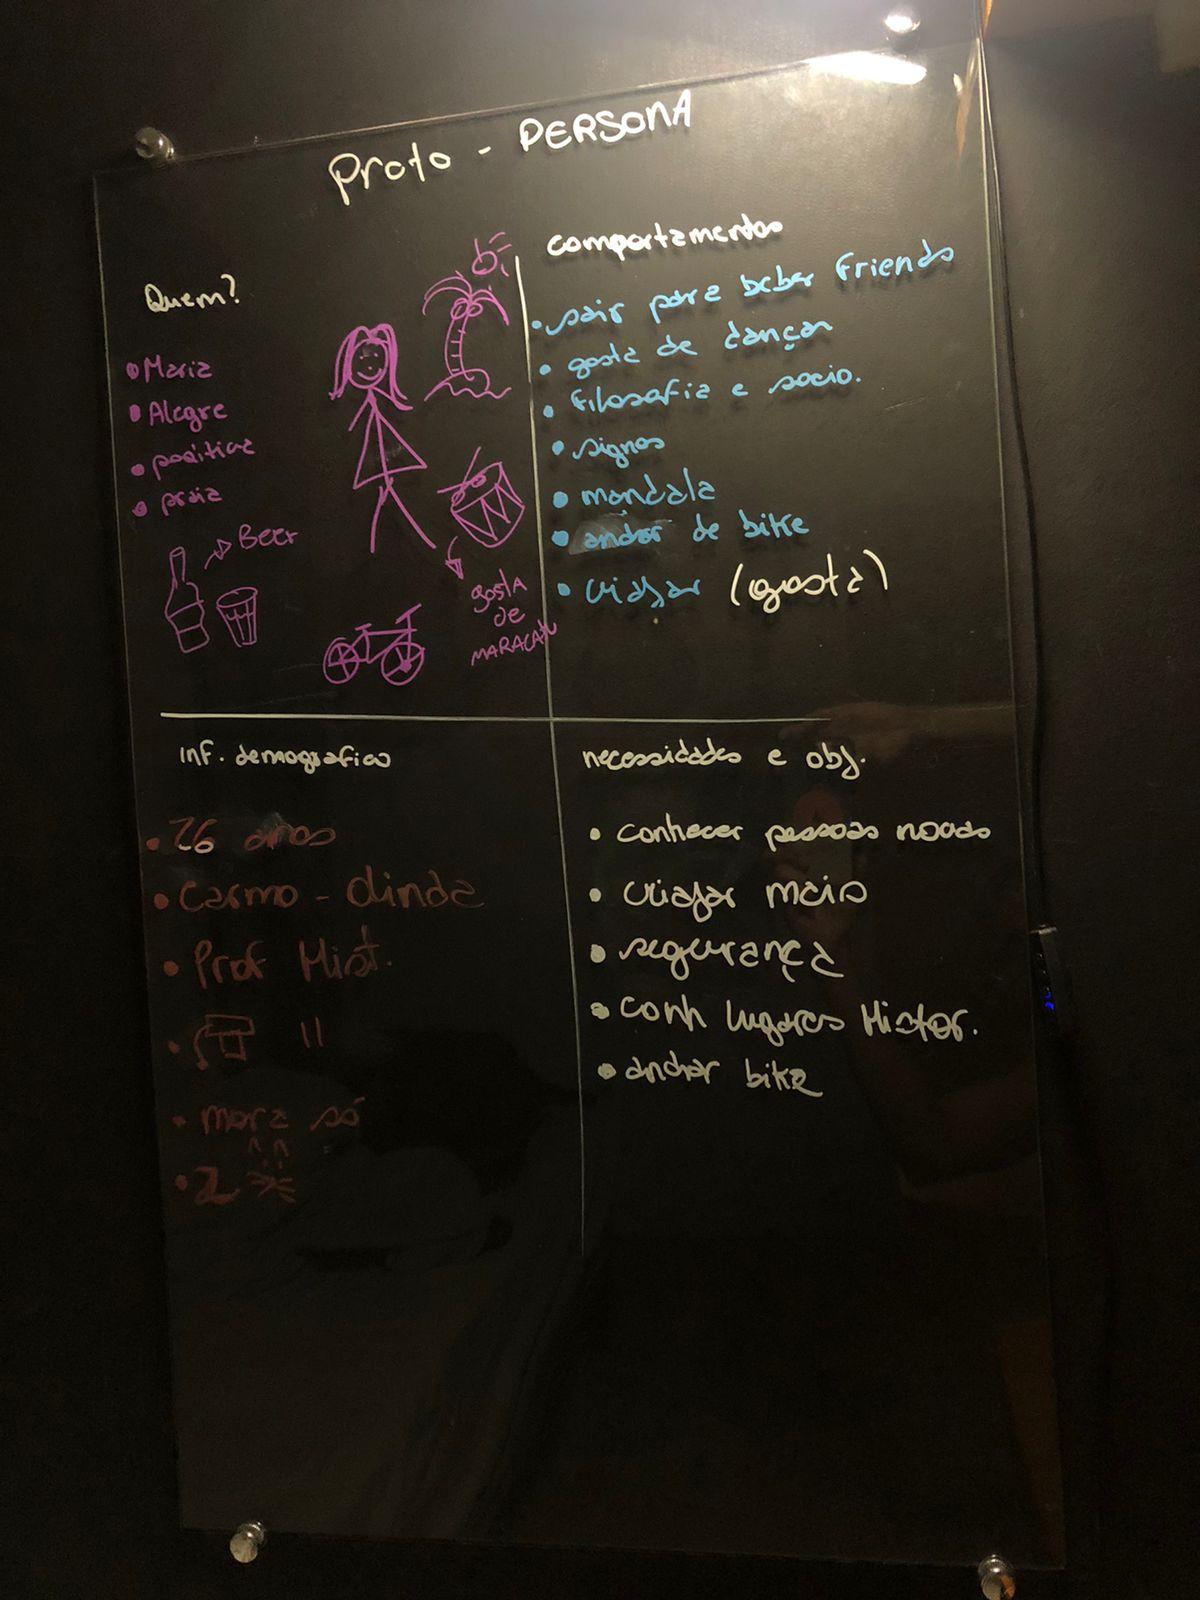 Proto - PERSONA
Quem?
• Maria
• Alegre
• positiva
• praia
Beer
gosta
de
MARACATU
comportamentos
• sair para beber friends
• gosta de dançar
• filosofia e socio.
• signos
• mandala
• andar de bike
• viajar (gosta)
inf. demografica
• 26 anos
• Carmo - Olinda
• Prof Hist.
• mora só
• 2
necessidades e obj.
• conhecer pessoas novas
• viajar mais
• segurança
• conh lugares Histor.
• andar bike